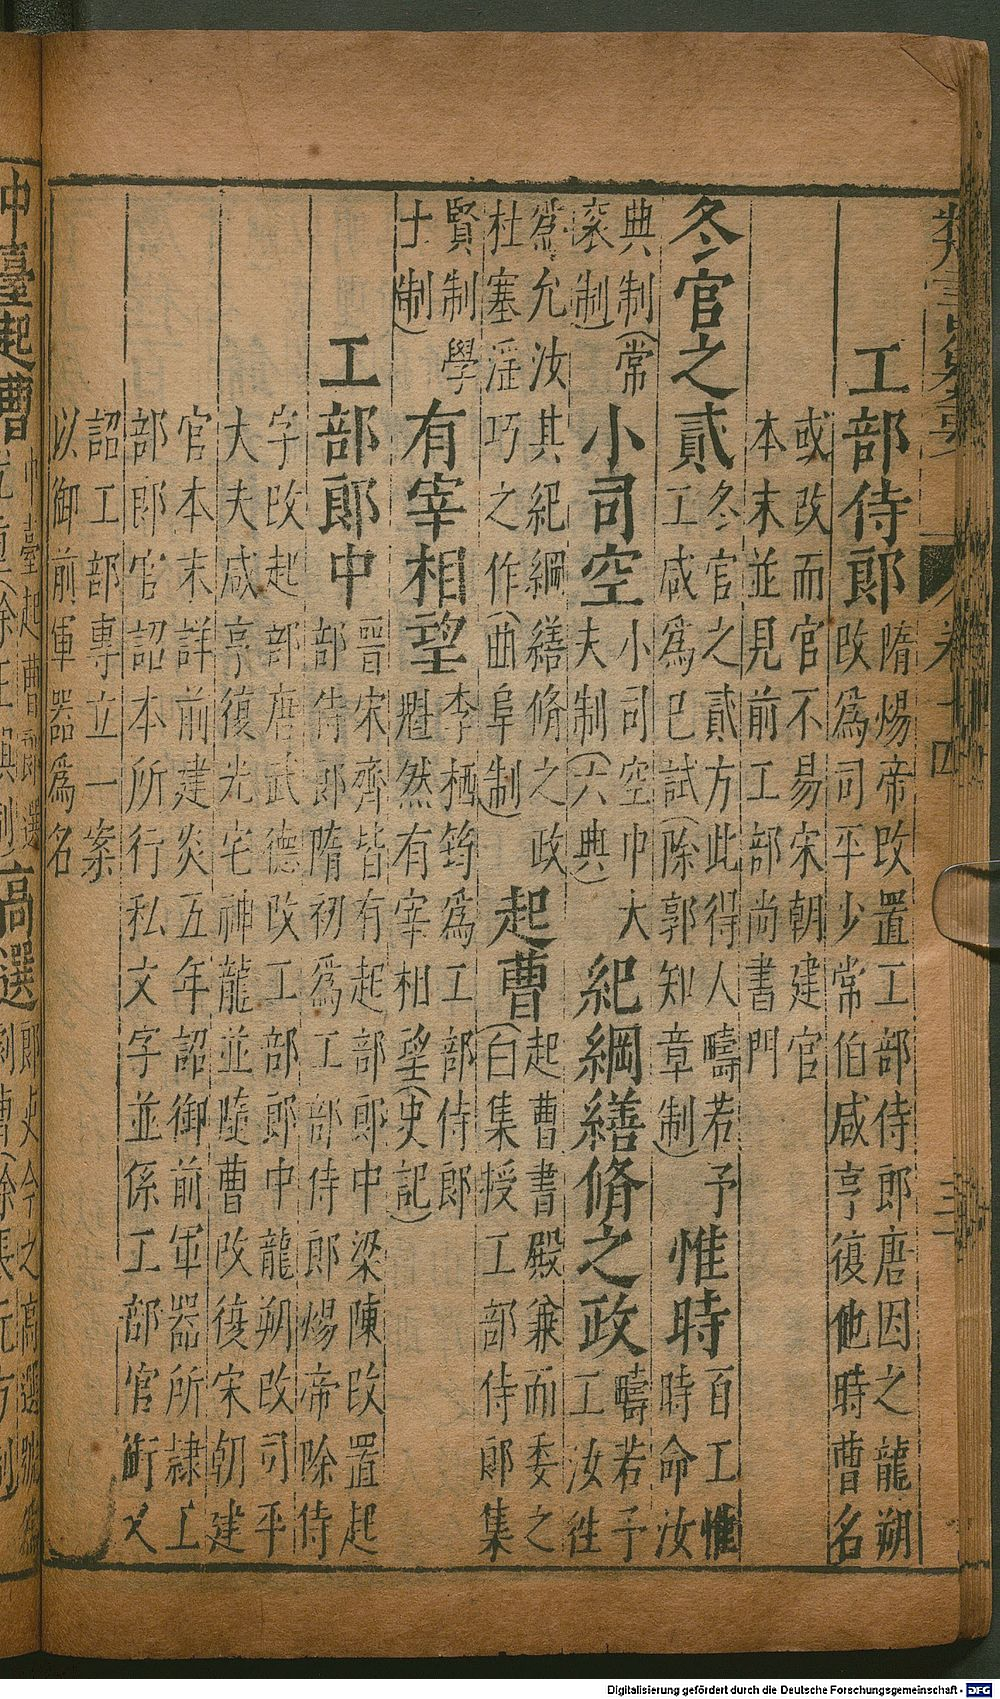 工部侍郎 隋煬帝改置工部侍郎唐因之龍朔
改為司平少常伯咸亨復他時曹名
或改而官不易宋朝建官
本末並見前工部尚書門
冬官之貳 冬官之貳方此得人疇若予
工咸為已試(除郭知章制) 惟時 百工惟
時命汝
典制(常
衮制) 小司空 小司空中大
夫制(六典) 紀綱繕脩之政 疇若予
工汝徃
為允汝其紀綱繕脩之政
杜塞滛巧之作(曲阜制) 起曹 起曹書殿兼而委之
(白集授工部侍郎集
賢制學
士制) 有宰相望 李栖筠為工部侍郎
魁然有宰相望(史記)
工部郎中 晉宋齊皆有起部郎中梁陳改置起
部侍郎隋初為工部侍郎煬帝除侍
字改起部唐武德改工部郎中龍朔改司平
大夫咸亨復光宅神龍並隨曹改復宋朝建
官本末詳前建炎五年詔御前軍器所隸工
部郎官詔本所行私文字並係工部官銜又
詔工部專立一案
以御前軍器為名
中臺起曹
高選
Digitalisierung gefördert durch die Deutsche Forschungsgemeinschaft - DFG